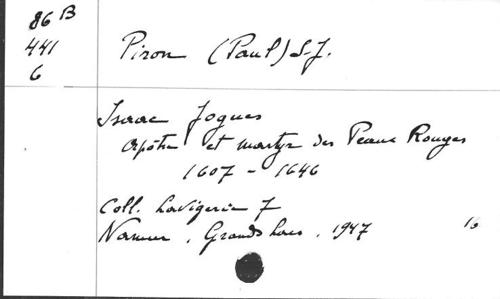 86 B
441
6
Piron (Paul) S.J.
Isaac Jogues
apôtre et martyr des Peaux Rouges
1607 - 1646
Coll. Lavigerie 7
Namur, Grands Lacs, 1947